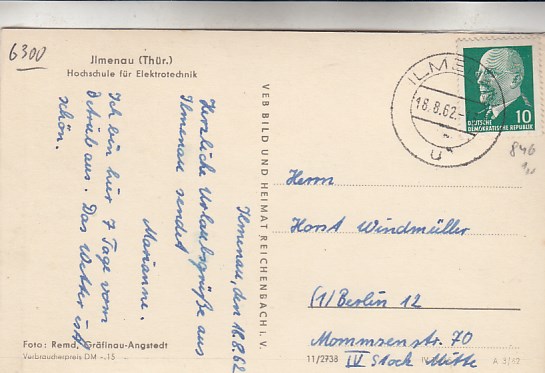 6300
Jlmenau (Thür.)
Hochschule für Elektrotechnik
Ilmenau, den 18.8.62
Herzliche Urlaubsgrüße aus
Ilmenau sendet
Marianne.
Ich bin hier 7 Tage vom
Betrieb aus. Das Wetter ist
schön.
Foto: Remd, Gräfinau-Angstedt
Verbraucherpreis DM -.15
VEB BILD UND HEIMAT REICHENBACH i. V.
ILMENAU
18.8.62.-
u
10
DEUTSCHE
DEMOKRATISCHE REPUBLIK
846
Herrn
Horst Windmüller
(1) Berlin 12
Mommsenstr. 70
IV Stock Mitte
11/2738
A 3/62